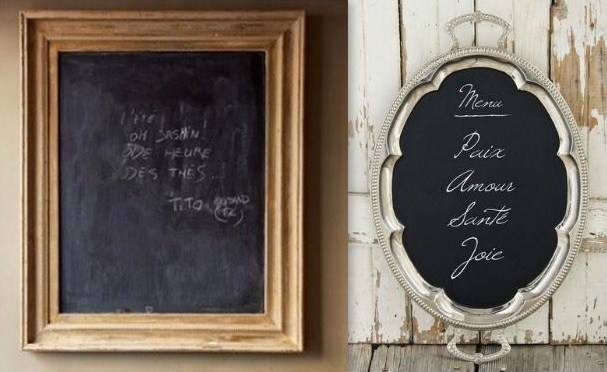 OH JASMIN
ODE HEURE
DES THÉS...
TITO
Menu
Paix
Amour
Santé
Joie